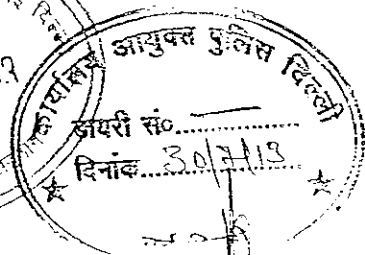 कार्यालय आयुक्त पुलिस दिल्ली
डायरी सं०
दिनांक 30/7/19